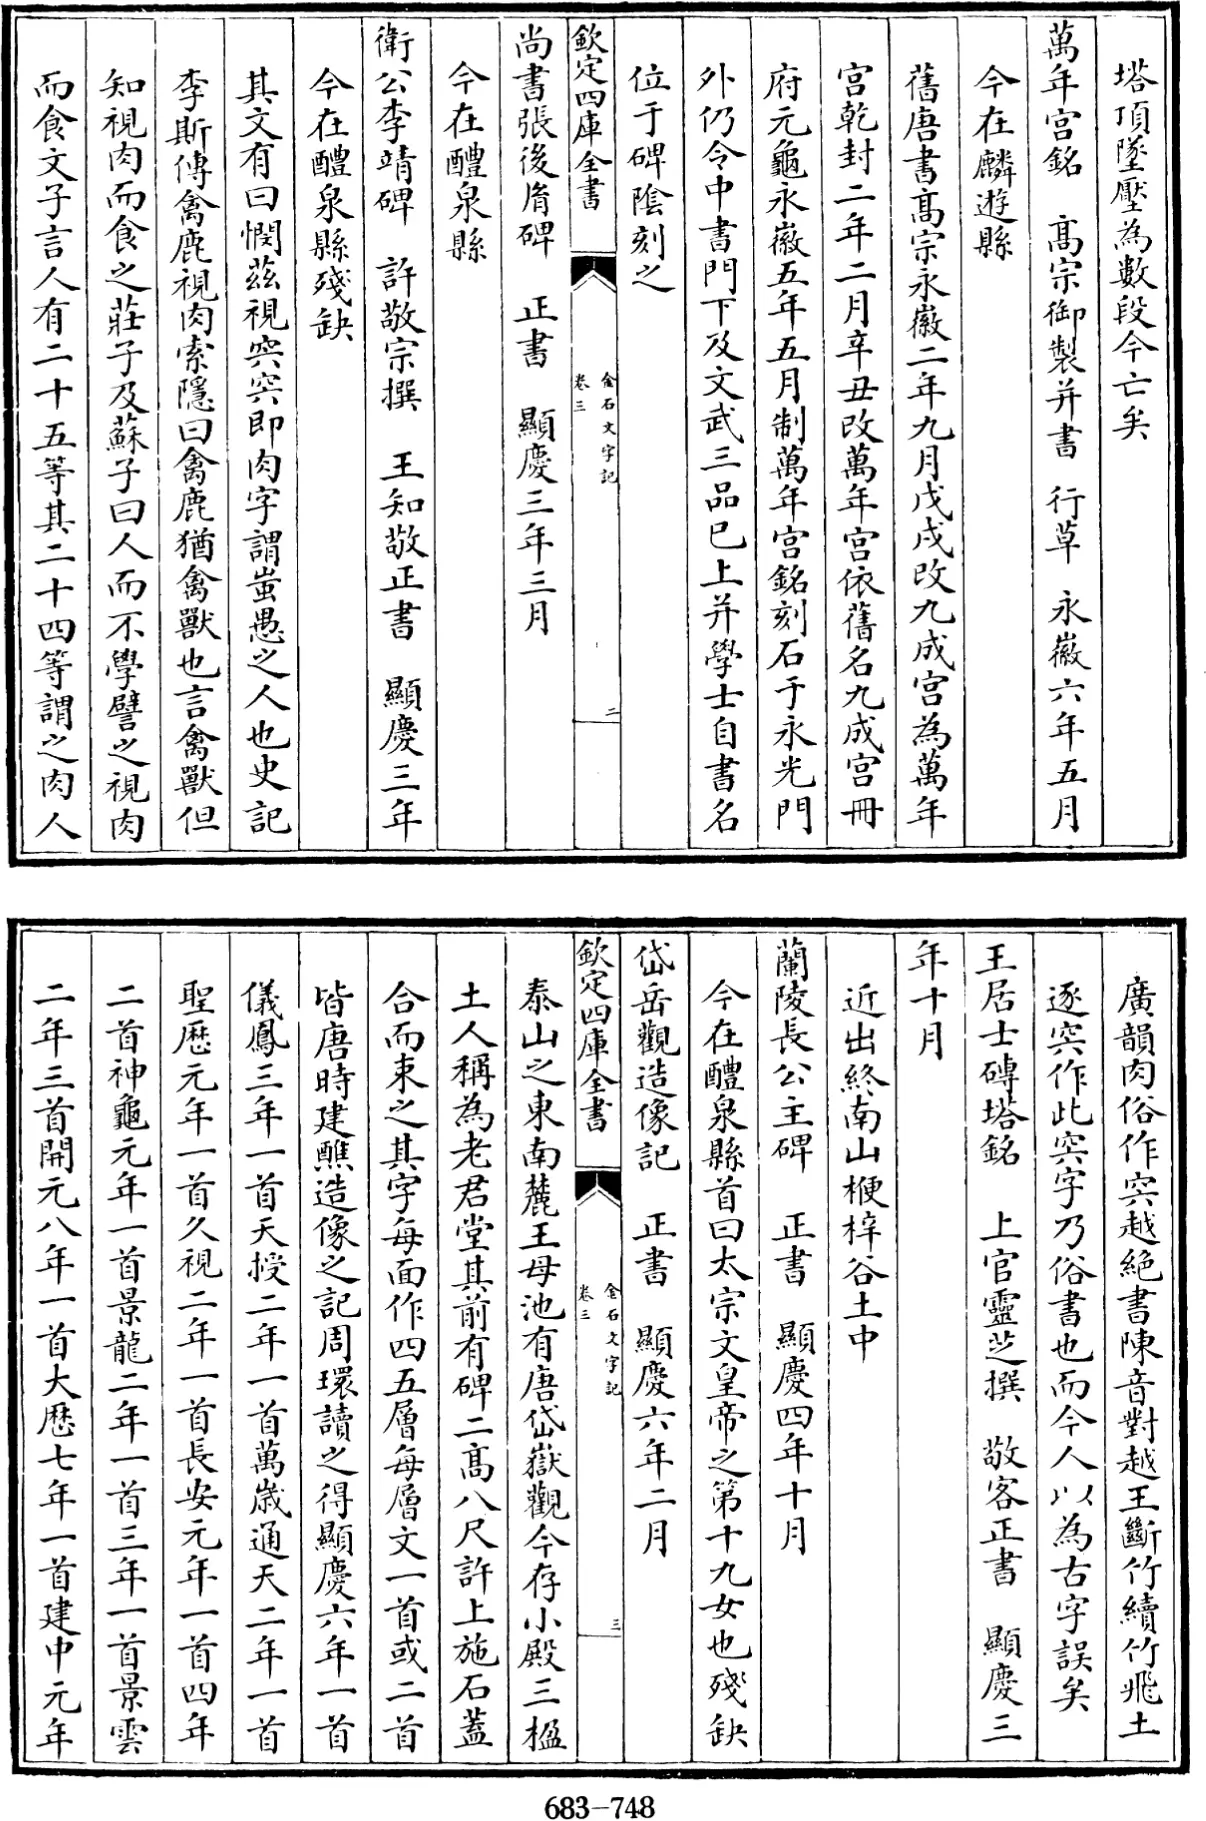 塔頂墜壓為數段今亡矣
萬年宮銘　高宗御製并書　行草　永徽六年五月
今在麟遊縣
舊唐書高宗永徽二年九月戊戌改九成宮為萬年
宮乾封二年二月辛丑改萬年宮依舊名九成宮冊
府元龜永徽五年五月制萬年宮銘刻石于永光門
外仍令中書門下及文武三品已上并學士自書名
位于碑陰刻之
欽定四庫全書
金石文字記
卷三
二
尚書張後胤碑　正書　顯慶三年三月
今在醴泉縣
衛公李靖碑　許敬宗撰　王知敬正書　顯慶三年
今在醴泉縣殘缺
其文有曰憫茲視宍宍即肉字謂蚩愚之人也史記
李斯傳禽鹿視肉索隱曰禽鹿猶禽獸也言禽獸但
知視肉而食之莊子及蘇子曰人而不學譬之視肉
而食文子言人有二十五等其二十四等謂之肉人
廣韻肉俗作宍越絕書陳音對越王斷竹續竹飛土
逐宍作此宍字乃俗書也而今人以為古字誤矣
王居士磚塔銘　上官靈芝撰　敬客正書　顯慶三
年十月
近出終南山楩梓谷土中
蘭陵長公主碑　正書　顯慶四年十月
今在醴泉縣首曰太宗文皇帝之第十九女也殘缺
岱岳觀造像記　正書　顯慶六年二月
欽定四庫全書
金石文字記
卷三
三
泰山之東南麓王母池有唐岱嶽觀今存小殿三楹
土人稱為老君堂其前有碑二高八尺許上施石蓋
合而束之其字每面作四五層每層文一首或二首
皆唐時建醮造像之記周環讀之得顯慶六年一首
儀鳳三年一首天授二年一首萬歲通天二年一首
聖歷元年一首久視二年一首長安元年一首四年
二首神龜元年一首景龍二年一首三年一首景雲
二年三首開元八年一首大歷七年一首建中元年
683-748